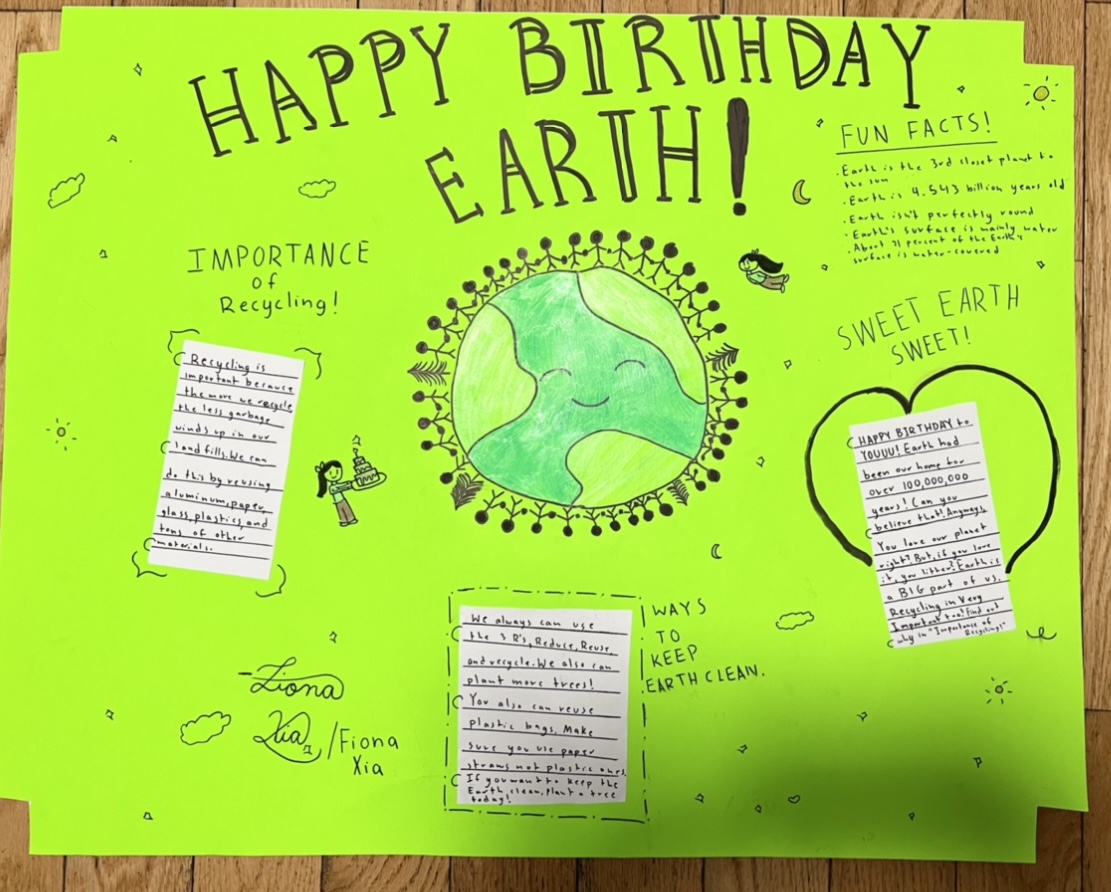 HAPPY BIRTHDAY
EARTH!
FUN FACTS!
·Earth is the 3rd closet planet to
the sun
·Earth is 4.543 billion years old
·Earth isn't perfectly round
·Earth's surface is mainly water
·About 71 percent of the Earth's
surface is water-covered
IMPORTANCE
of
Recycling!
Recycling is
important because
the more we recycle
the less garbage
winds up in our
land fills. We can
do this by reusing
aluminum, paper,
glass, plastics, and
tons of other
materials.
SWEET EARTH
SWEET!
HAPPY BIRTHDAY to
YOUUU! Earth had
been our home for
over 100,000,000
years! Can you
believe that! Anyways,
You love our planet
right? But, if you love
it, you litter? Earth is
a BIG part of us.
Recycling in Very
Important too! Find out
why in "Importance of
Recycling!"
We always can use
the 3 R's, Reduce, Reuse,
and recycle. We also can
plant more trees!
You also can reuse
plastic bags, Make
sure you use paper
straws not plastic ones.
If you want to keep the
Earth, clean, plant a tree
today!
WAYS
TO
KEEP
EARTH CLEAN.
-Fiona
Xia /Fiona
Xia